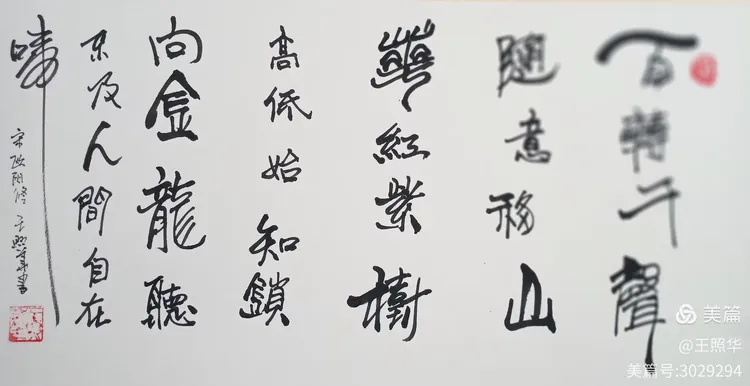 百轉千聲
隨意移山
華紅紫樹
高低始知鎖
向金龍聽
不及人間自在
啼
宋欧阳修 王照華書
美篇
@王照华
美篇号:3029294